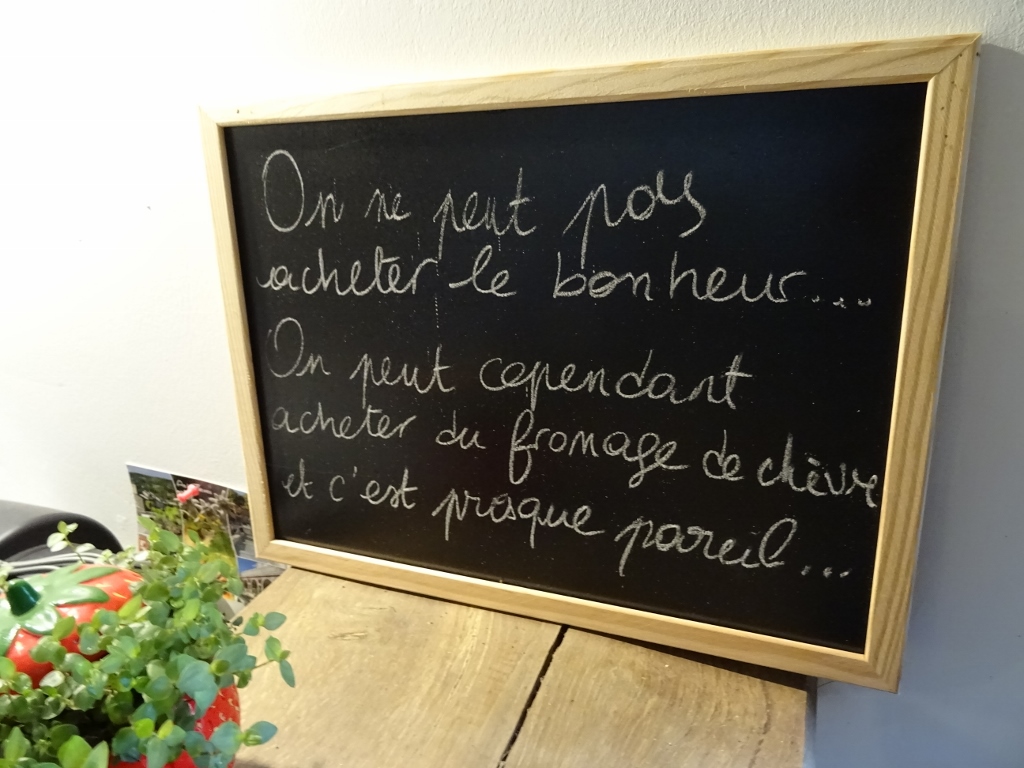 On ne peut pas
acheter le bonheur...
On peut cependant
acheter du fromage de chèvre
et c'est presque pareil...